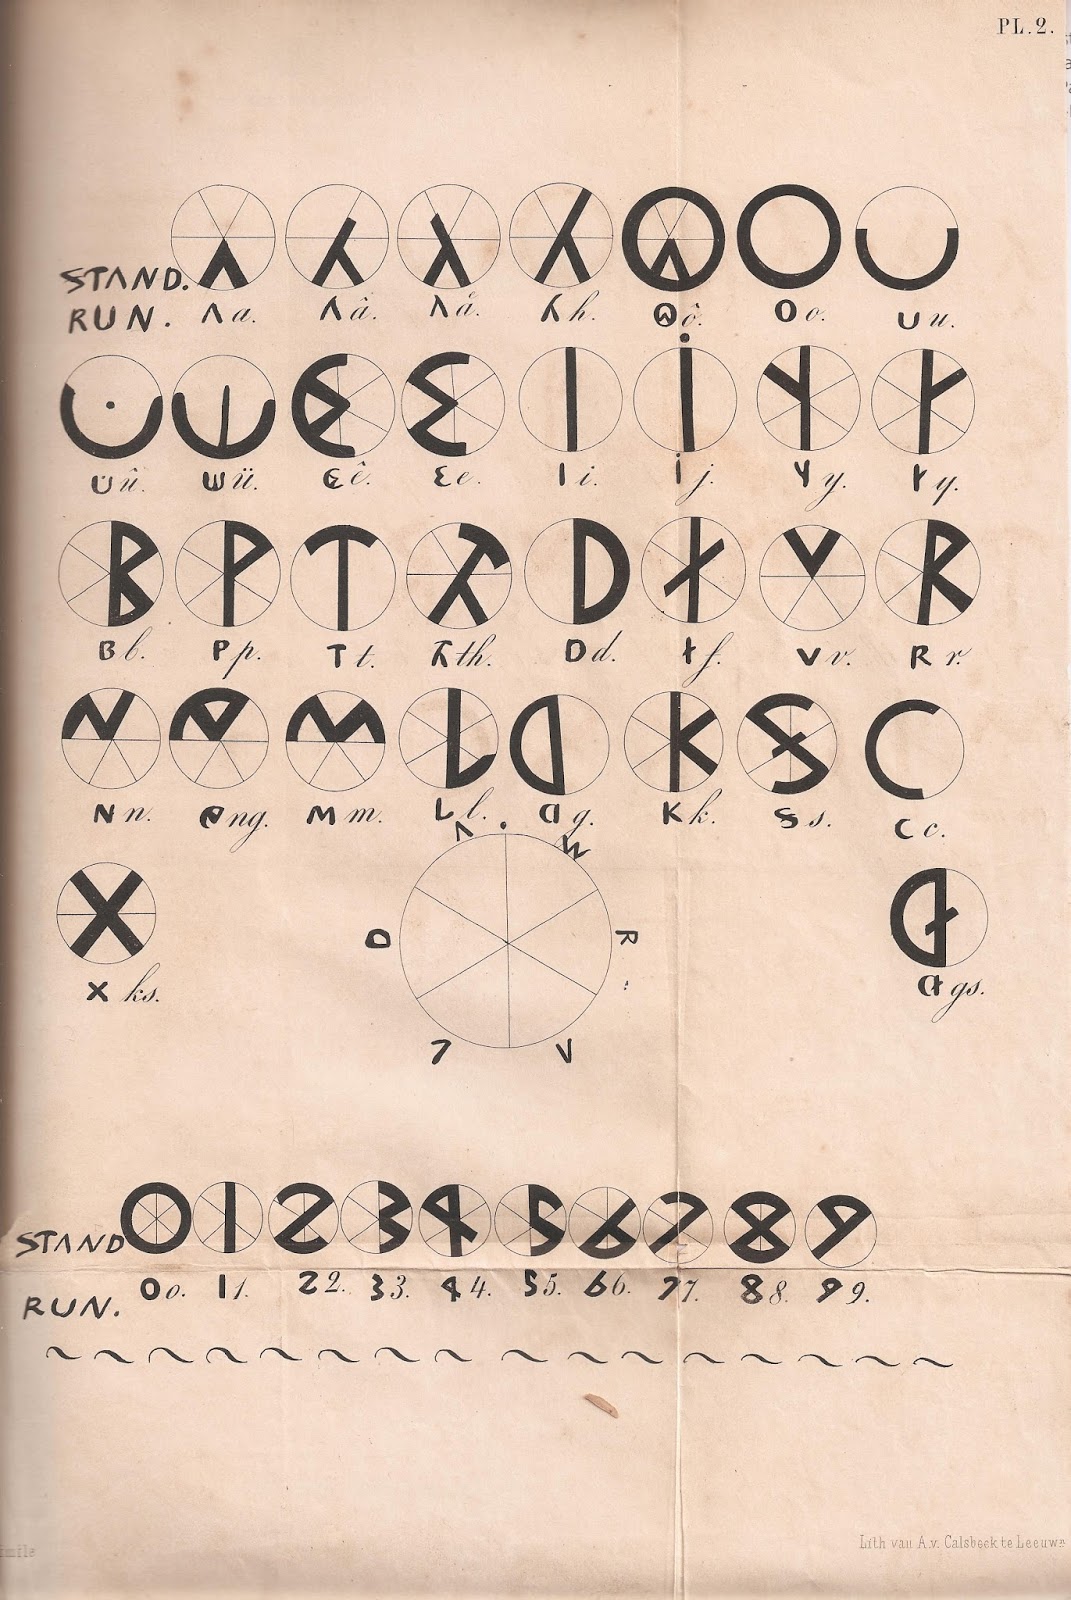 PL.2.
STAND.
RUN. Λ a. Λ â. Λ å. h. ô. O o. U u.
Ü û. W ü. Ɛ ê. Ɛ e. I i. j. y. y.
B b. P p. T t. th. D d. f. V v. R r.
N n. ng. M m. L l. g. K k. S s. C c.
X ks. gs.
STAND
RUN. 0 0. 1 1. 2 2. 3 3. 4 4. 5 5. 6 6. 7 7. 8 8. 9 9.
Lith van A.v. Calsbeek te Leeuwn